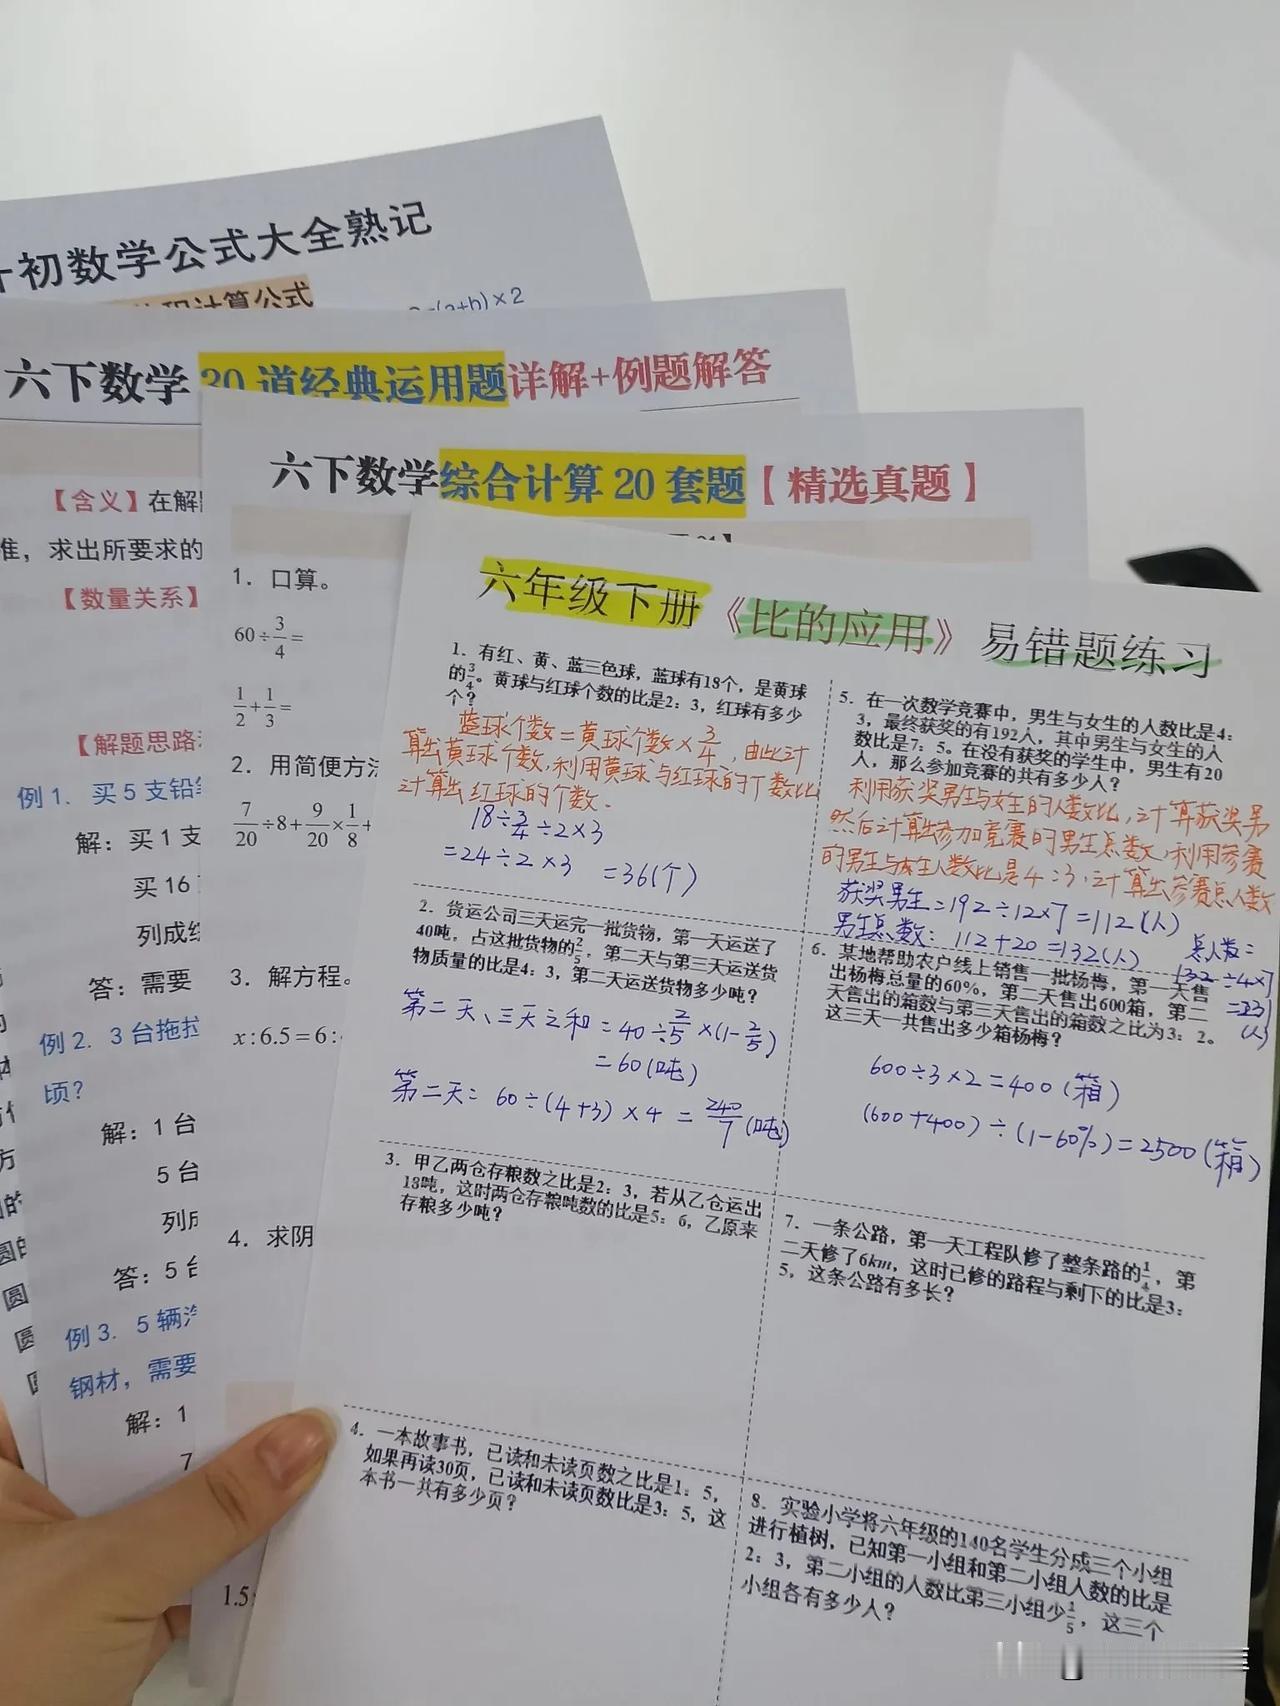 升初数学公式大全熟记
积计算公式
(a+b)×2
六下数学30道经典运用题详解+例题解答
【含义】在解
准，求出所要求的
【数量关系】
【解题思路
例1. 买5支铅笔
解：买1支
买16
列成综
答：需要
例2. 3台拖拉
顷？
解：1台
5台
列成
答：5台
例3. 5辆汽
钢材，需要
解：1
7
六下数学综合计算20套题【精选真题】
1. 口算。
60÷3/4=
1/2+1/3=
2. 用简便方法
7/20÷8+9/20×1/8+
3. 解方程。
x:6.5=6:
4. 求阴
1.5
六年级下册《比的应用》易错题练习
1. 有红、黄、蓝三色球，蓝球有18个，是黄球
的3/4。黄球与红球个数的比是2：3，红球有多少
个？
蓝球个数=黄球个数×3/4，由此计
算出黄球个数，利用黄球与红球的个数比
计算出红球的个数.
18÷3/4÷2×3
=24÷2×3 =36(个)
2. 货运公司三天运完一批货物，第一天运送了
40吨，占这批货物的2/5，第二天与第三天运送货
物质量的比是4：3，第二天运送货物多少吨？
第二天、三天之和=40÷2/5×(1-2/5)
=60(吨)
第二天：60÷(4+3)×4=240/7(吨)
3. 甲乙两仓存粮数之比是2：3，若从乙仓运出
18吨，这时两仓存粮吨数的比是5：6，乙原来
存粮多少吨？
4. 一本故事书，已读和未读页数之比是1：5，
如果再读30页，已读和未读页数比是3：5，这
本书一共有多少页？
5. 在一次数学竞赛中，男生与女生的人数比是4：
3，最终获奖的有192人，其中男生与女生的人
数比是7：5。在没有获奖的学生中，男生有20
人，那么参加竞赛的共有多少人？
利用获奖男生与女生的人数比，计算获奖男
然后计算出参加竞赛的男生总数，利用参赛
的男生与女生人数比是4:3，计算出参赛总人数
获奖男生=192÷12×7=112(人)
男生总数：112+20=132(人)
总人数=
132÷4×7
=231
(人)
6. 某地帮助农户线上销售一批杨梅，第一天售
出杨梅总量的60%，第二天售出600箱，第二
天售出的箱数与第三天售出的箱数之比为3：2。
这三天一共售出多少箱杨梅？
600÷3×2=400(箱)
(600+400)÷(1-60%)=2500(箱)
7. 一条公路，第一天工程队修了整条路的1/4，第
二天修了6km，这时已修的路程与剩下的比是3：
5，这条公路有多长？
8. 实验小学将六年级的140名学生分成三个小组
进行植树，已知第一小组和第二小组人数的比是
2：3，第二小组的人数比第三小组少1/5，这三个
小组各有多少人？